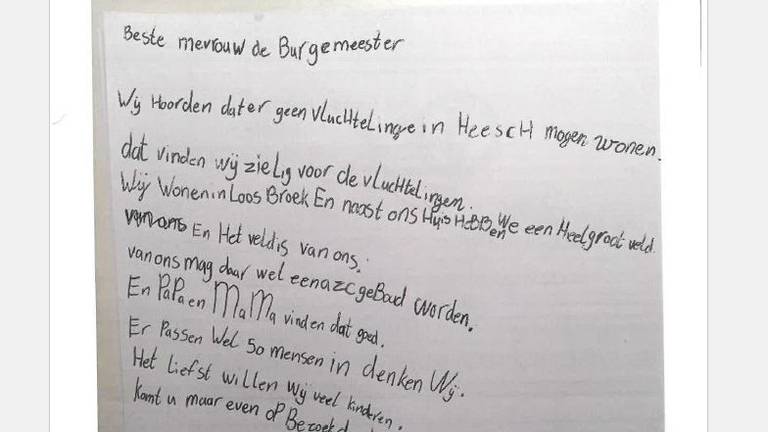 Beste mevrouw de Burgemeester
Wij Hoorden dat er geen vluchtelinge in Heesch mogen wonen.
dat vinden wij zielig voor de vluchtelingen.
Wij Wonen in Loos Broek En naast ons Huis HeBBen We een Heel groot veld.
van ons En Het veld is van ons.
van ons mag daar wel een azc geBoud worden.
En PaPa en MaMa vinden dat goed.
Er Passen Wel 50 mensen in denken Wij.
Het Liefst willen wij veel kinderen.
Komt u maar even oP Bezoek